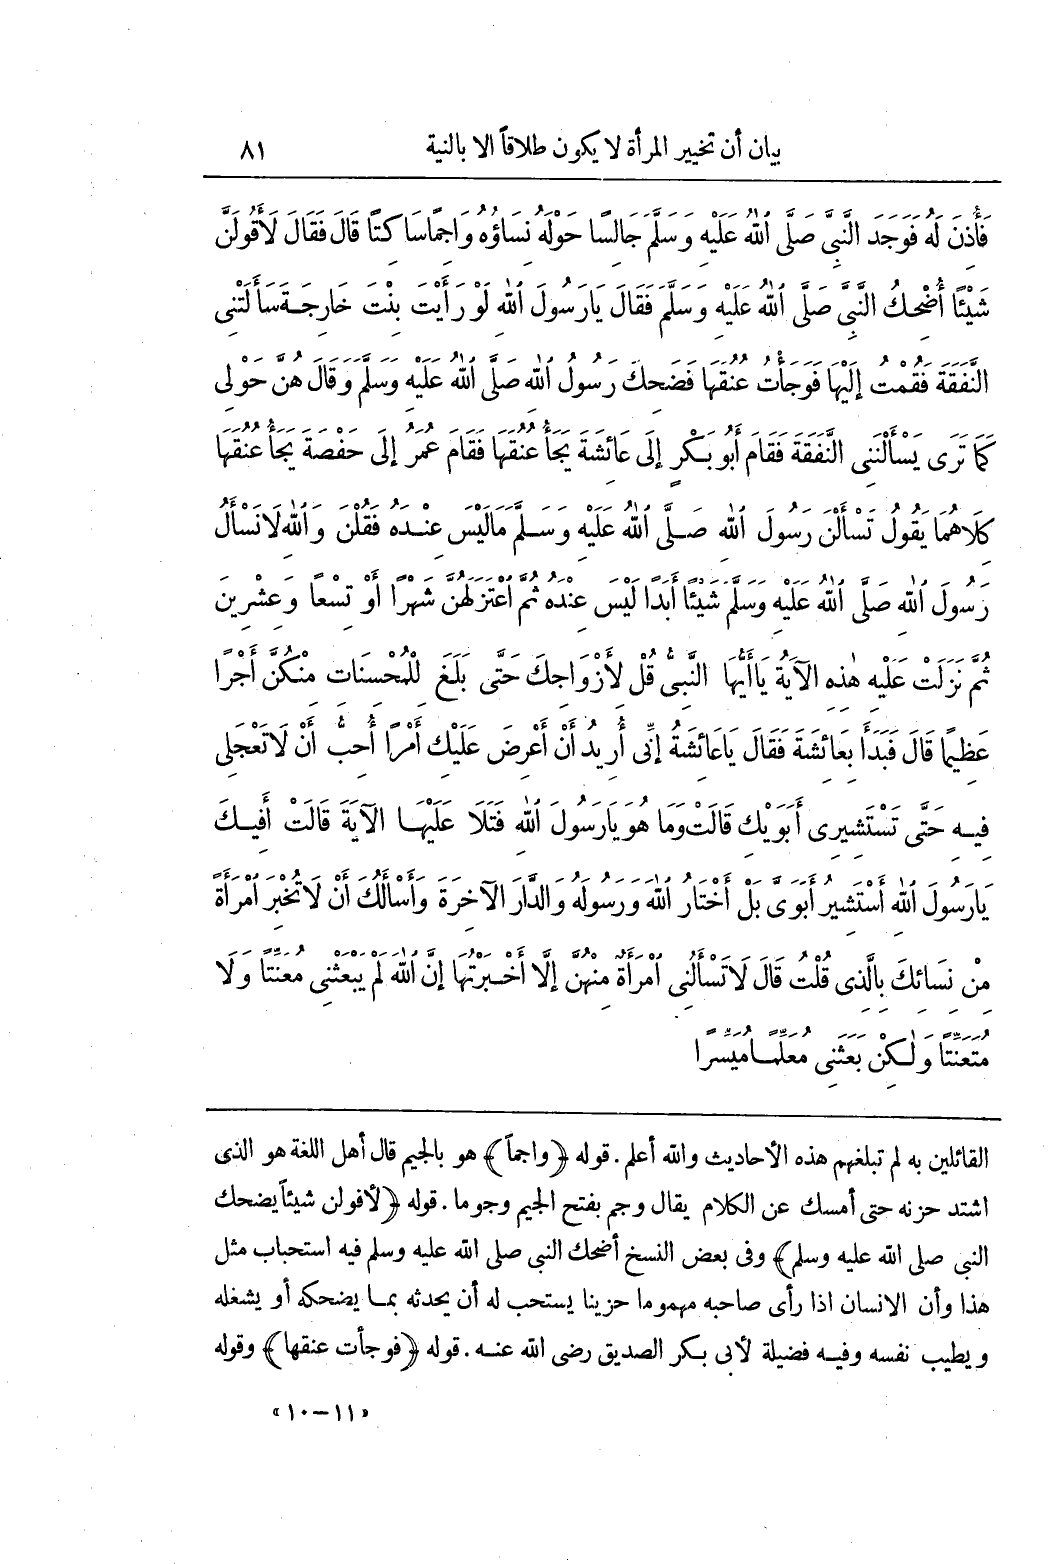 بيان أن تخيير المرأة لا يكون طلاقاً الا بالنية ٨١
فَأُذِنَ لَهُ فَوَجَدَ النَّبِىَّ صَلَّى ٱللهُ عَلَيْهِ وَسَلَّمَ جَالِسًا حَوْلَهُ نِسَاؤُهُ وَاجِمًا سَاكِتًا قَالَ فَقَالَ لَأَقُولَنَّ
شَيْئًا أُضْحِكُ النَّبِىَّ صَلَّى ٱللهُ عَلَيْهِ وَسَلَّمَ فَقَالَ يَارَسُولَ ٱللهِ لَوْ رَأَيْتَ بِنْتَ خَارِجَةَ سَأَلَتْنِى
النَّفَقَةَ فَقُمْتُ إِلَيْهَا فَوَجَأْتُ عُنُقَهَا فَضَحِكَ رَسُولُ ٱللهِ صَلَّى ٱللهُ عَلَيْهِ وَسَلَّمَ وَقَالَ هُنَّ حَوْلِى
كَمَا تَرَى يَسْأَلْنَنِى النَّفَقَةَ فَقَامَ أَبُو بَكْرٍ إِلَى عَائِشَةَ يَجَأُ عُنُقَهَا فَقَامَ عُمَرُ إِلَى حَفْصَةَ يَجَأُ عُنُقَهَا
كِلَاهُمَا يَقُولُ تَسْأَلْنَ رَسُولَ ٱللهِ صَلَّى ٱللهُ عَلَيْهِ وَسَلَّمَ مَالَيْسَ عِنْدَهُ فَقُلْنَ وَٱللهِ لَانَسْأَلُ
رَسُولَ ٱللهِ صَلَّى ٱللهُ عَلَيْهِ وَسَلَّمَ شَيْئًا أَبَدًا لَيْسَ عِنْدَهُ ثُمَّ ٱعْتَزَلَهُنَّ شَهْرًا أَوْ تِسْعًا وَعِشْرِينَ
ثُمَّ نَزَلَتْ عَلَيْهِ هٰذِهِ الآيَةُ يَاأَيُّهَا النَّبِىُّ قُلْ لِأَزْوَاجِكَ حَتَّى بَلَغَ لِلْمُحْسِنَاتِ مِنْكُنَّ أَجْرًا
عَظِيمًا قَالَ فَبَدَأَ بِعَائِشَةَ فَقَالَ يَاعَائِشَةُ إِنِّى أُرِيدُ أَنْ أَعْرِضَ عَلَيْكِ أَمْرًا أُحِبُّ أَنْ لَاتَعْجَلِى
فِيهِ حَتَّى تَسْتَشِيرِى أَبَوَيْكِ قَالَتْ وَمَا هُوَ يَارَسُولَ ٱللهِ فَتَلَا عَلَيْهَا الآيَةَ قَالَتْ أَفِيكَ
يَارَسُولَ ٱللهِ أَسْتَشِيرُ أَبَوَىَّ بَلْ أَخْتَارُ ٱللهَ وَرَسُولَهُ وَالدَّارَ الآخِرَةَ وَأَسْأَلُكَ أَنْ لَاتُخْبِرَ ٱمْرَأَةً
مِنْ نِسَائِكَ بِالَّذِى قُلْتُ قَالَ لَاتَسْأَلُنِى ٱمْرَأَةٌ مِنْهُنَّ إِلَّا أَخْبَرْتُهَا إِنَّ ٱللهَ لَمْ يَبْعَثْنِى مُعَنِّتًا وَلَا
مُتَعَنِّتًا وَلٰكِنْ بَعَثَنِى مُعَلِّمًا مُيَسِّرًا
القائلين به لم تبلغهم هذه الأحاديث والله أعلم . قوله ﴿واجماً﴾ هو بالجيم قال أهل اللغة هو الذى
اشتد حزنه حتى أمسك عن الكلام يقال وجم بفتح الجيم وجوما . قوله ﴿لأقولن شيئاً يضحك
النبى صلى الله عليه وسلم﴾ وفى بعض النسخ أضحك النبى صلى الله عليه وسلم فيه استحباب مثل
هذا وأن الانسان اذا رأى صاحبه مهموما حزينا يستحب له أن يحدثه بما يضحكه أو يشغله
ويطيب نفسه وفيه فضيلة لأبى بكر الصديق رضى الله عنه . قوله ﴿فوجأت عنقها﴾ وقوله
«١١ – ١٠»